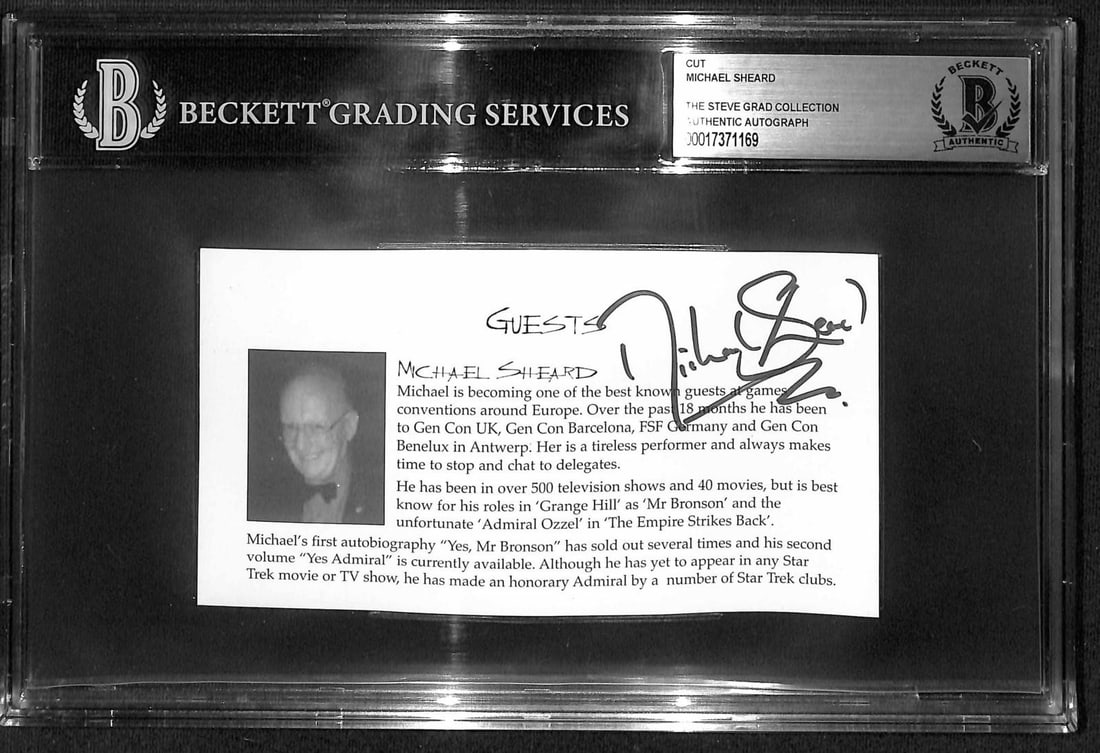 B
BECKETT® GRADING SERVICES
CUT
MICHAEL SHEARD
THE STEVE GRAD COLLECTION
AUTHENTIC AUTOGRAPH
00017371169
BECKETT
B
AUTHENTIC
GUESTS
Michael Sheard
MICHAEL SHEARD
Michael is becoming one of the best known guests at games
conventions around Europe. Over the past 18 months he has been
to Gen Con UK, Gen Con Barcelona, FSF Germany and Gen Con
Benelux in Antwerp. Her is a tireless performer and always makes
time to stop and chat to delegates.
He has been in over 500 television shows and 40 movies, but is best
know for his roles in ‘Grange Hill’ as ‘Mr Bronson’ and the
unfortunate ‘Admiral Ozzel’ in ‘The Empire Strikes Back’.
Michael’s first autobiography “Yes, Mr Bronson” has sold out several times and his second
volume “Yes Admiral” is currently available. Although he has yet to appear in any Star
Trek movie or TV show, he has made an honorary Admiral by a number of Star Trek clubs.